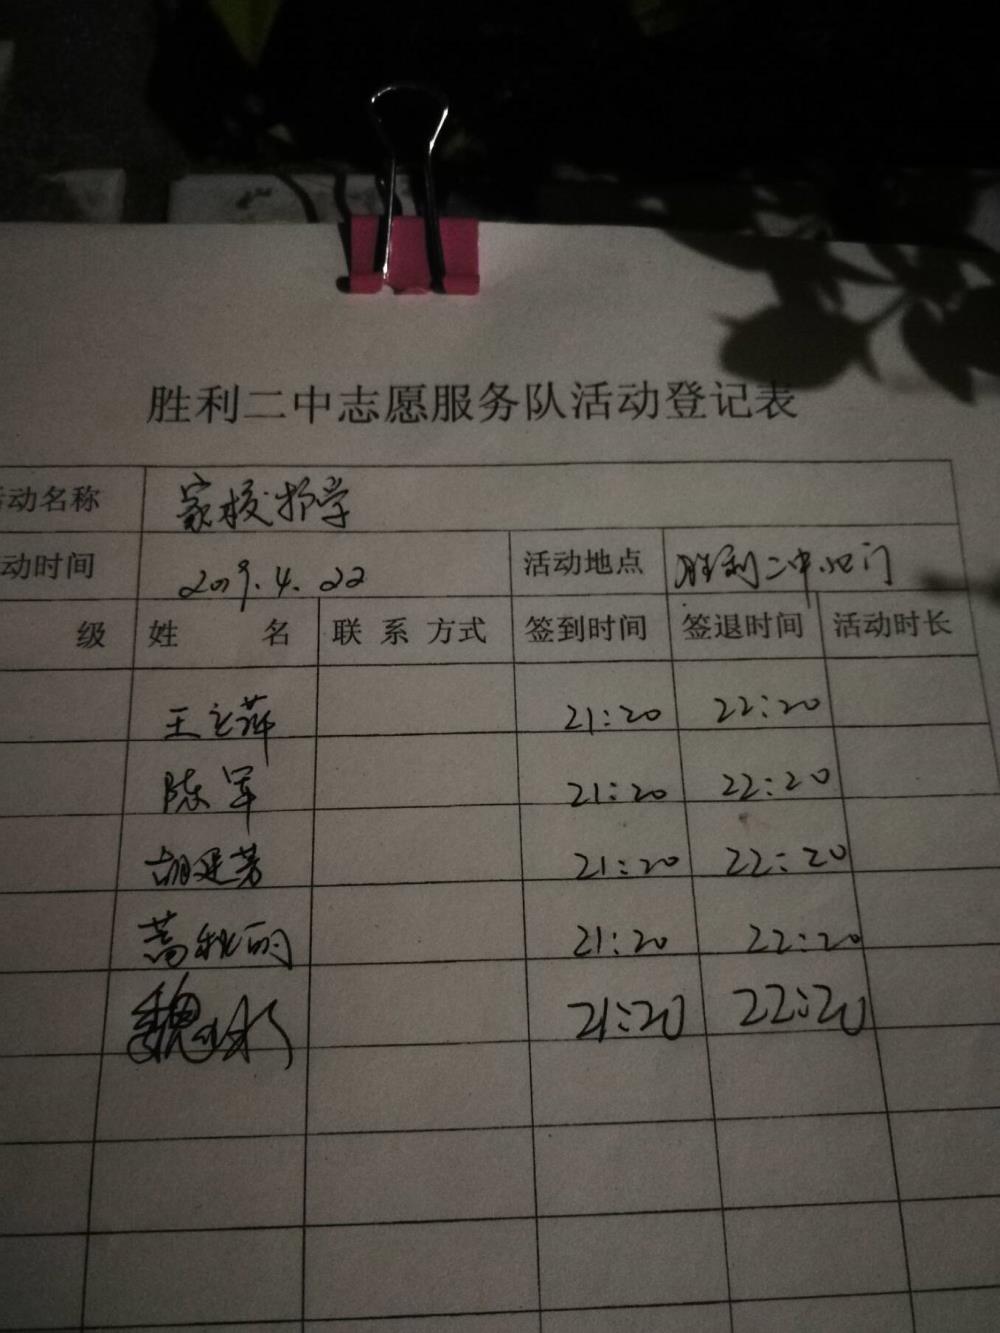 胜利二中志愿服务队活动登记表
活动名称 家校护学
动时间 2019.4.22 活动地点 胜利二中北门
级 姓 名 联 系 方式 签到时间 签退时间 活动时长
王立萍 21:20 22:20
陈军 21:20 22:20
胡建芳 21:20 22:20
蒿秋丽 21:20 22:20
魏 21:20 22:20